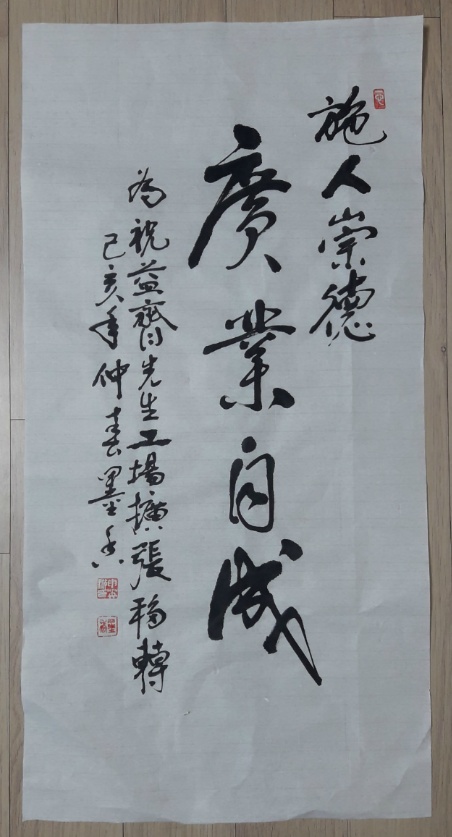 施人崇德
廣業自成
為祝益齊先生工場擴張移轉
己亥年仲春墨香